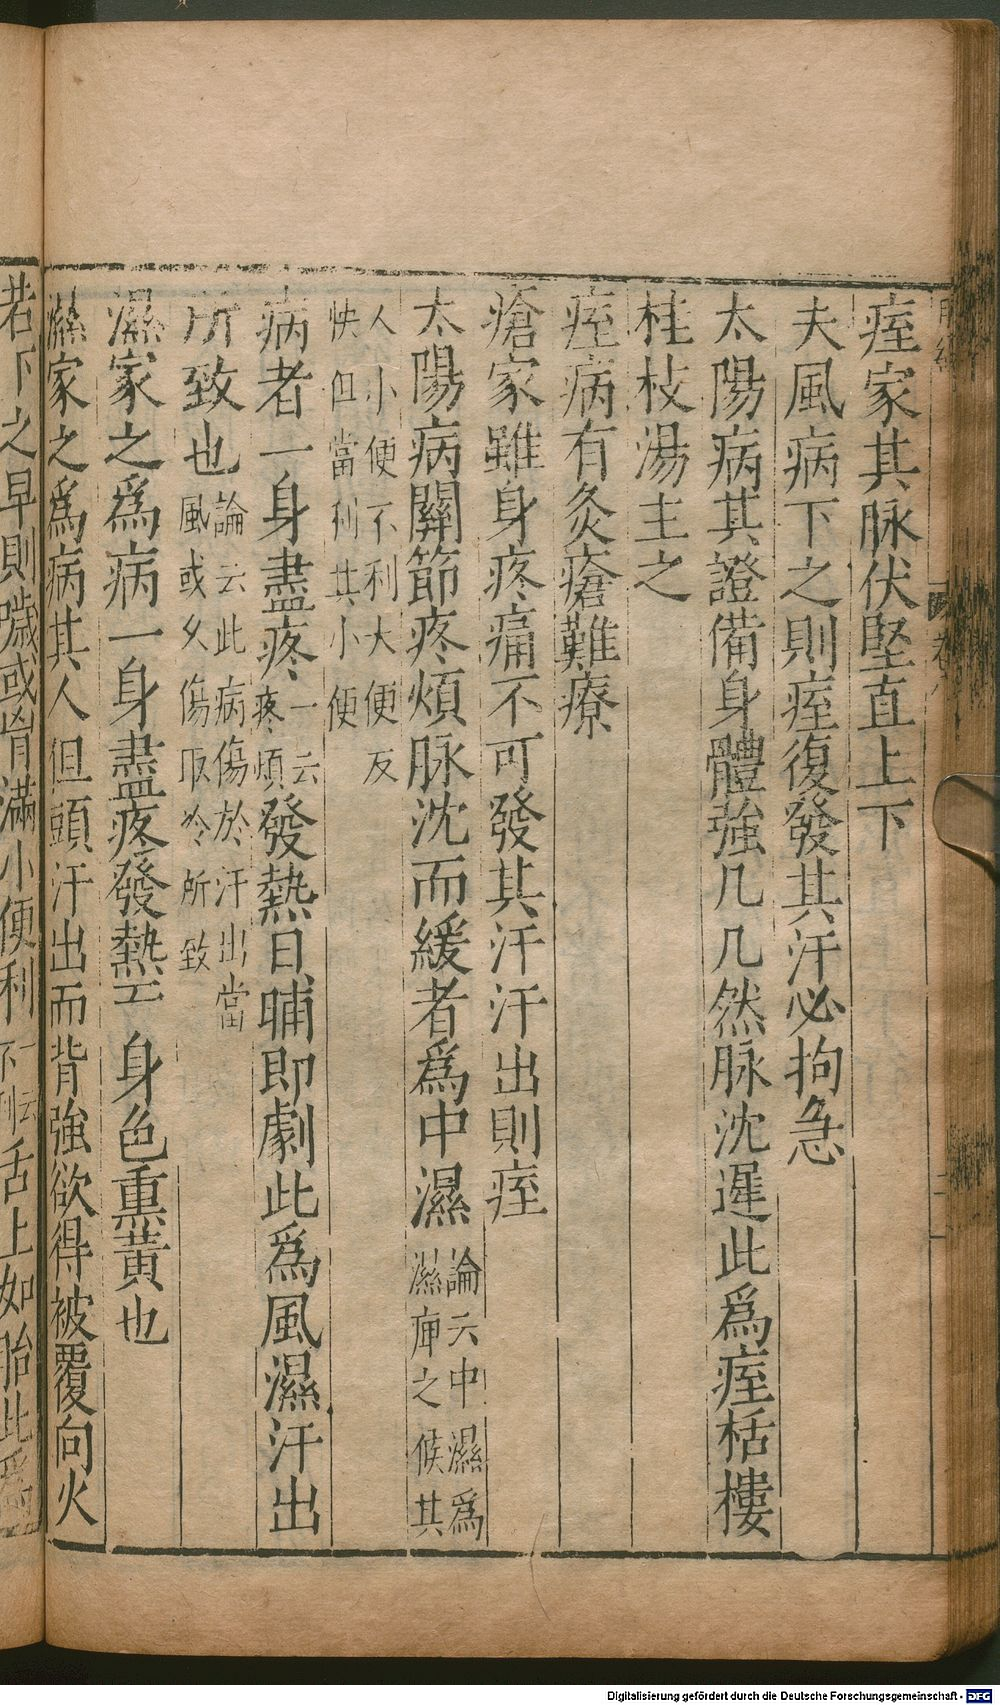 痓家其脉伏堅直上下
夫風病下之則痓復發其汗必拘急
太陽病其證備身體強几几然脉沈遲此爲痓栝樓
桂枝湯主之
痓病有灸瘡難療
瘡家雖身疼痛不可發其汗汗出則痓
太陽病關節疼煩脉沈而緩者爲中濕論云中濕爲濕痺之候其
人小便不利大便反快但當利其小便
病者一身盡疼一云疼煩發熱日晡即劇此爲風濕汗出
所致也論云此病傷於汗出當風或久傷取冷所致
濕家之爲病一身盡疼發熱而身色熏黃也
濕家之爲病其人但頭汗出而背強欲得被覆向火
若下之早則噦或胷滿小便利一云不利舌上如胎此爲
Digitalisierung gefördert durch die Deutsche Forschungsgemeinschaft - DFG